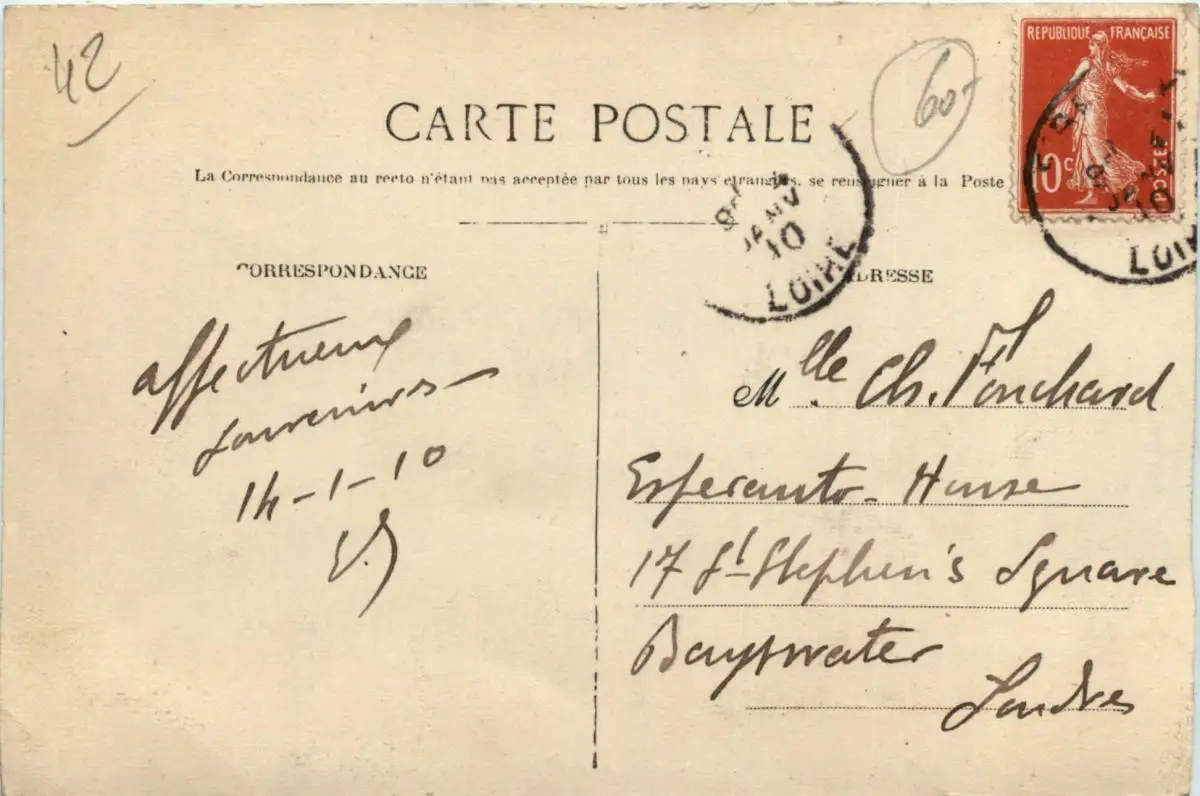 42
60-
REPUBLIQUE FRANÇAISE
10c
POSTES
CARTE POSTALE
La Correspondance au recto n'étant pas acceptée par tous les pays etrangers, se renseigner à la Poste
JANV
10
LOIRE
JANV
10
CORRESPONDANCE
ADRESSE
affectueux
souvenirs
14-1-10
Mlle. Ch. Fouchard
Esperanto-House
17 St Stephen's Square
Bayswater
Londres